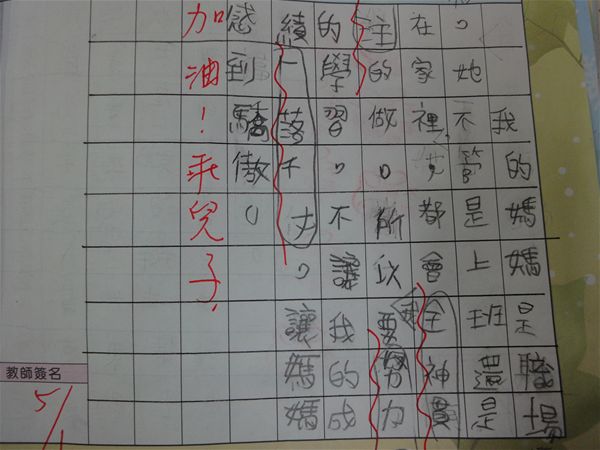 我的媽媽是職場
，她不管是上班還是
在家裡，都會全神貫
注的做，所以我要努力
的學習，不讓我的成
績一落千丈，讓媽媽
感到驕傲。
加油！乖兒子！
教師簽名
5/1